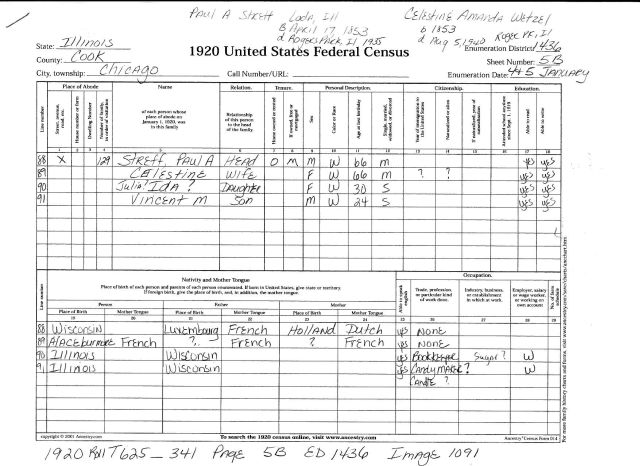 PAUL A STREFF Loda, Ill CELESTINE AMANDA WETZEL
B APRIL 17, 1853 b 1853
d Rogers Park Il 1935 d Aug 5, 1940 Roger PK, Il
State: Illinois
1920 United States Federal Census
Enumeration District: 1436
County: Cook
Sheet Number: 5B
City, township: Chicago
Call Number/URL:
Enumeration Date: 4+5 JANUARY
Place of Abode Name Relation. Tenure. Personal Description. Citizenship. Education.
Line number
Street, avenue, road, etc.
House number or farm
Dwelling Number
Number of family, in order of visitation
of each person whose place of abode on January 1, 1920, was in this family
Relationship of this person to the head of the family.
Home owned or rented
If owned, free or mortgaged
Sex
Color or Race
Age at last birthday
Single, married, widowed, or divorced
Year of immigration to the United States
Naturalized or alien
If naturalized, year of naturalization
Attended school anytime since Sept. 1, 1919
Able to read
Able to write
1 2 3 4 5 6 7 8 9 10 11 12 13 14 15 16 17 18
88 X 129 STREFF, PAUL A HEAD O M M W 66 M yes yes
89 CELESTINE WIFE F W 66 M ? ? yes yes
90 Julia? IDA? DAUGHTER F W 30 S yes yes
91 VINCENT M SON M W 24 S yes yes
Nativity and Mother Tongue
Occupation.
Place of birth of each person and parents of each person enumerated. If born in United States, give state or territory.
If foreign birth, give the place of birth, and, in addition, the mother tongue.
Line number
Person Father Mother
Place of Birth Mother Tongue Place of Birth Mother Tongue Place of Birth Mother Tongue
Able to speak english
Trade, profession, or particular kind of work done.
Industry, business, or establishment in which at work.
Employer, salary or wage worker, or working on own account
No. of farm schedule
19 20 21 22 23 24 25 26 27 28 29
88 Wisconsin Luxembourg French HOLLAND Dutch yes NONE
89 French ? French ? French yes NONE
90 ILLINOIS Wisconsin yes Bookkeeper Sugar? W
91 ILLINOIS Wisconsin yes Candymaker? W
CANDE ?
copyright © 2001 Ancestry.com
To search the 1920 census online, visit www.ancestry.com
Ancestry' Census Form 014
For more family history charts and forms, visit www.ancestry.com/save/charts/ancchart.htm
1920 Roll T625_341 PAGE 5B ED 1436 IMAGE 1091